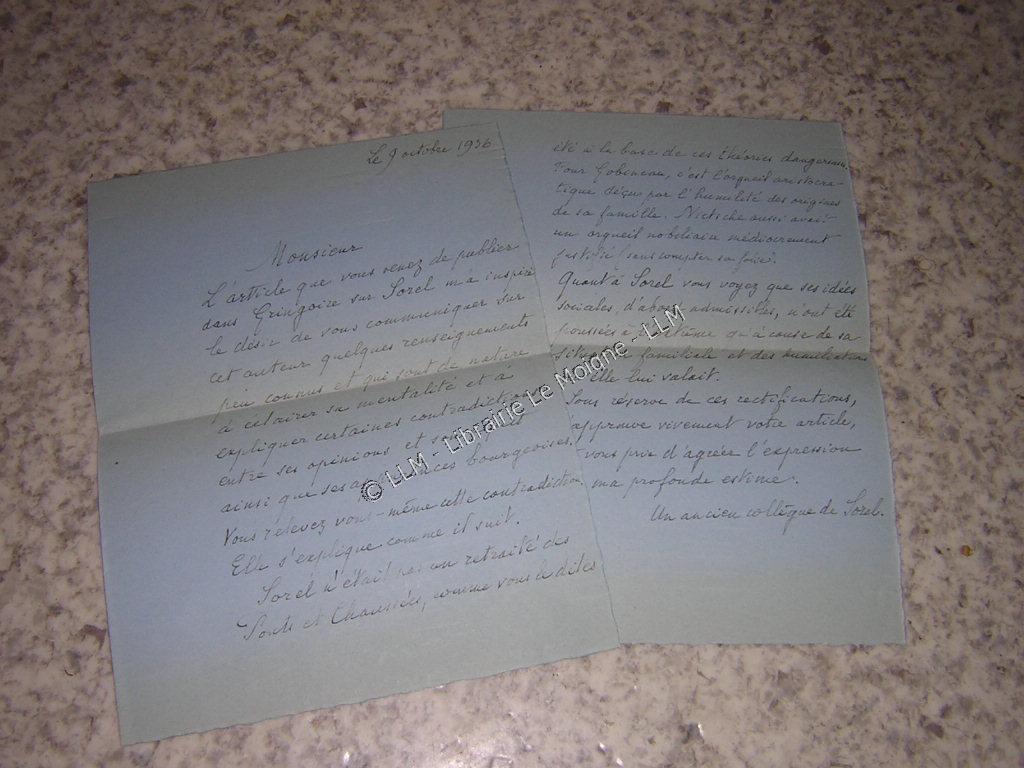 Le 9 octobre 1936
Monsieur
L'article que vous venez de publier
dans Gringoire sur Sorel m'a inspiré
le désir de vous communiquer sur
cet auteur quelques renseignements
peu connus et qui sont de nature
à éclairer sa mentalité et à
expliquer certaines contradictions
entre ses opinions et
ainsi que ses bourgeoises.
Vous relevez vous-même cette contradiction
Elle s'explique comme il suit.
Sorel n'était pas un retraité des
Ponts et Chaussées, comme vous le dites
été à la base de ces théories dangereuses.
Pour Gobineau, c'est l'orgueil aristocra-
tique déçu par l'humilité des origines
de sa famille. Nietsche aussi avait
un orgueil nobiliaire médiocrement
justifié (sans compter sa folie).
Quant à Sorel vous voyez que ses idées
sociales, d'abord admissibles, n'ont été
poussées à qu'à cause de sa
familiale et des humiliations
elle lui valait.
Sous réserve de ces rectifications,
approuve vivement votre article,
vous prie d'agréer l'expression
ma profonde estime.
Un ancien collègue de Sorel.
© LLM - Librairie Le Moigne - LLM